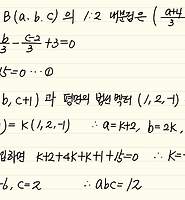 B(a.b.c) 의 1:2 내분점은 (a+4/3
b/3 - c-2/3 +3=0
15=0 …①
b, c+1) 과 평면의 법선 벡터 (1, 2, -1)
) = K(1, 2, -1) ∴ a=K+2, b=2K,
하면 K+2+4K+K+1+15=0 ∴ K=-
-6, c=2 ∴ abc=12